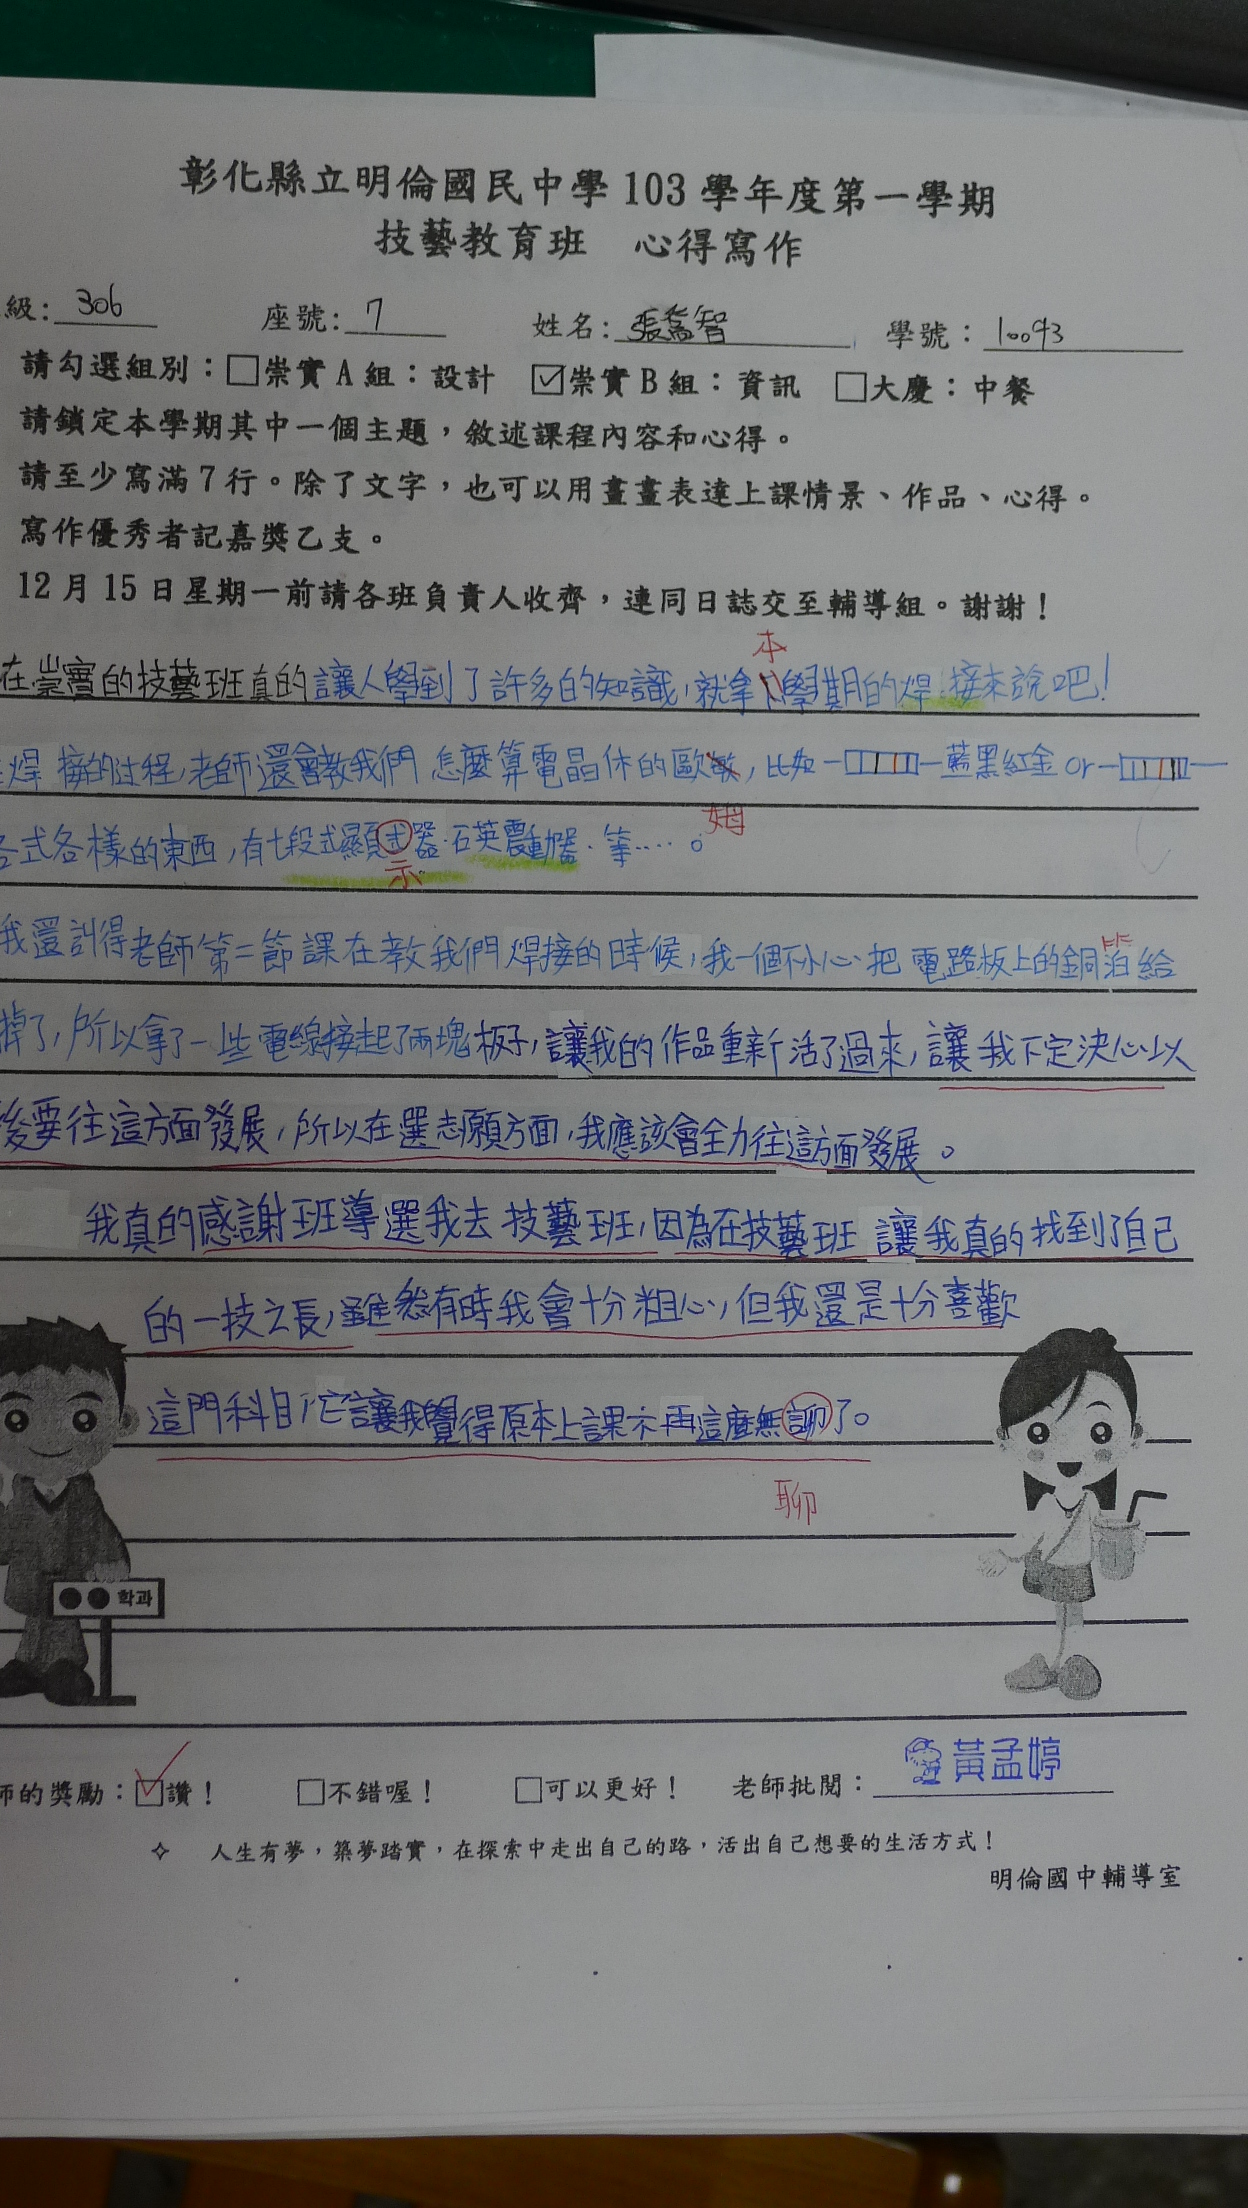 彰化縣立明倫國民中學103學年度第一學期
技藝教育班 心得寫作
級:306 座號:7 姓名:張喬智 學號:10093
請勾選組別:□崇實A組:設計 ☑崇實B組:資訊 □大慶:中餐
請鎖定本學期其中一個主題,敘述課程內容和心得。
請至少寫滿7行。除了文字,也可以用畫畫表達上課情景、作品、心得。
寫作優秀者記嘉獎乙支。
12月15日星期一前請各班負責人收齊,連同日誌交至輔導組。謝謝!
本
在崇實的技藝班真的讓人學到了許多的知識,就拿學期的焊接來說吧!
焊接的過程,老師還會教我們怎麼算電晶体的歐,比如 藍黑紅金or
姆
各式各樣的東西,有七段式顯式器.石英震動器.等....。
示
我還討得老師第二節課在教我們焊接的時候,我一個不小心把電路板上的銅泊給
掉了,所以拿了一些電線接起了兩塊板子,讓我的作品重新活了過來,讓我下定決心以
後要往這方面發展,所以在選志願方面,我應該會全力往這方面發展。
我真的感謝班導選我去技藝班,因為在技藝班讓我真的找到了自己
的一技之長,雖然有時我會十分粗心,但我還是十分喜歡
這門科目,它讓我覺得原本上課不再這麼無了。
聊
학과
師的獎勵:☑讚! □不錯喔! □可以更好! 老師批閱:黃孟婷
✧ 人生有夢,築夢踏實,在探索中走出自己的路,活出自己想要的生活方式!
明倫國中輔導室